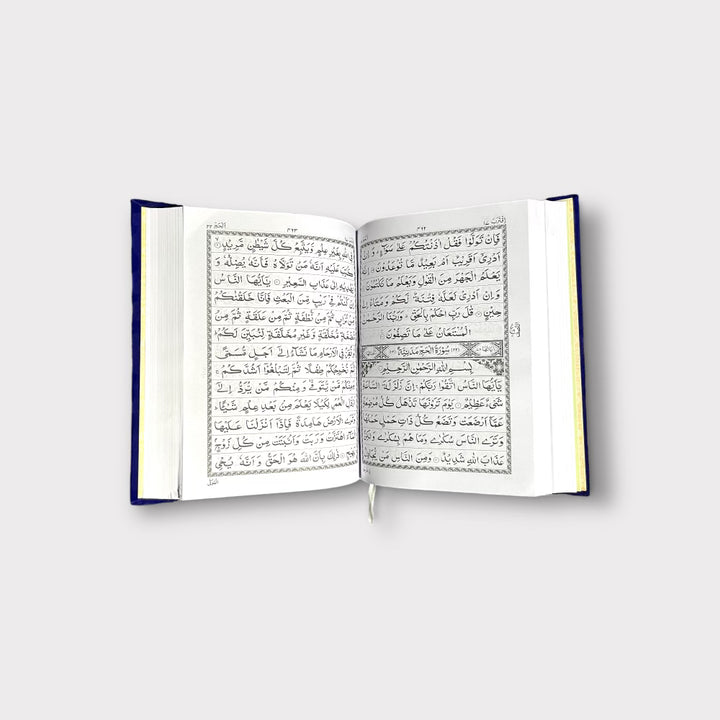 اقترب ١٧
٣٩٢
فَإِنْ تَوَلَّوْا فَقُلْ اٰذَنْتُكُمْ عَلٰى سَوَآءٍ ؕ وَ اِنْ
اَدْرِیْۤ اَقَرِیْبٌ اَمْ بَعِیْدٌ مَّا تُوْعَدُوْنَ
یَعْلَمُ الْجَهْرَ مِنَ الْقَوْلِ وَ یَعْلَمُ مَا تَكْتُمُوْنَ
وَ اِنْ اَدْرِیْ لَعَلَّهٗ فِتْنَةٌ لَّكُمْ وَ مَتَاعٌ اِلٰى
حِیْنٍ قٰلَ رَبِّ احْكُمْ بِالْحَقِّ ؕ وَ رَبُّنَا الرَّحْمٰنُ
الْمُسْتَعَانُ عَلٰى مَا تَصِفُوْنَ
سُوْرَةُ الْحَجِّ مَدَنِیَّةٌ
بِسْمِ اللّٰهِ الرَّحْمٰنِ الرَّحِیْمِ
یٰۤاَیُّهَا النَّاسُ اتَّقُوْا رَبَّكُمْ ۚ اِنَّ زَلْزَلَةَ السَّاعَةِ
شَیْءٌ عَظِیْمٌ یَوْمَ تَرَوْنَهَا تَذْهَلُ كُلُّ مُرْضِعَةٍ
عَمَّاۤ اَرْضَعَتْ وَ تَضَعُ كُلُّ ذَاتِ حَمْلٍ حَمْلَهَا
وَ تَرَى النَّاسَ سُكٰرٰى وَ مَا هُمْ بِسُكٰرٰى وَ لٰكِنَّ
عَذَابَ اللّٰهِ شَدِیْدٌ وَ مِنَ النَّاسِ مَنْ یُّجَادِلُ
الحج ٢٢
٣٩٣
فِی اللّٰهِ بِغَیْرِ عِلْمٍ وَّ یَتَّبِعُ كُلَّ شَیْطٰنٍ مَّرِیْدٍ
كُتِبَ عَلَیْهِ اَنَّهٗ مَنْ تَوَلَّاهُ فَاَنَّهٗ یُضِلُّهٗ وَ
یَهْدِیْهِ اِلٰى عَذَابِ السَّعِیْرِ یٰۤاَیُّهَا النَّاسُ
اِنْ كُنْتُمْ فِیْ رَیْبٍ مِّنَ الْبَعْثِ فَاِنَّا خَلَقْنٰكُمْ
مِّنْ تُرَابٍ ثُمَّ مِنْ نُّطْفَةٍ ثُمَّ مِنْ عَلَقَةٍ ثُمَّ مِنْ
مُّضْغَةٍ مُّخَلَّقَةٍ وَّ غَیْرِ مُخَلَّقَةٍ لِّنُبَیِّنَ لَكُمْ ؕ
وَ نُقِرُّ فِی الْاَرْحَامِ مَا نَشَآءُ اِلٰۤى اَجَلٍ مُّسَمًّى
ثُمَّ نُخْرِجُكُمْ طِفْلًا ثُمَّ لِتَبْلُغُوْۤا اَشُدَّكُمْ ۚ
وَ مِنْكُمْ مَّنْ یُّتَوَفّٰى وَ مِنْكُمْ مَّنْ یُّرَدُّ اِلٰۤى
اَرْذَلِ الْعُمُرِ لِكَیْلَا یَعْلَمَ مِنْۢ بَعْدِ عِلْمٍ شَیْـًٔا ؕ
وَ تَرَى الْاَرْضَ هَامِدَةً فَاِذَاۤ اَنْزَلْنَا عَلَیْهَا
الْمَآءَ اهْتَزَّتْ وَ رَبَتْ وَ اَنْۢبَتَتْ مِنْ كُلِّ زَوْجٍۭ
بَهِیْجٍ ذٰلِكَ بِاَنَّ اللّٰهَ هُوَ الْحَقُّ وَ اَنَّهٗ یُحْیِ